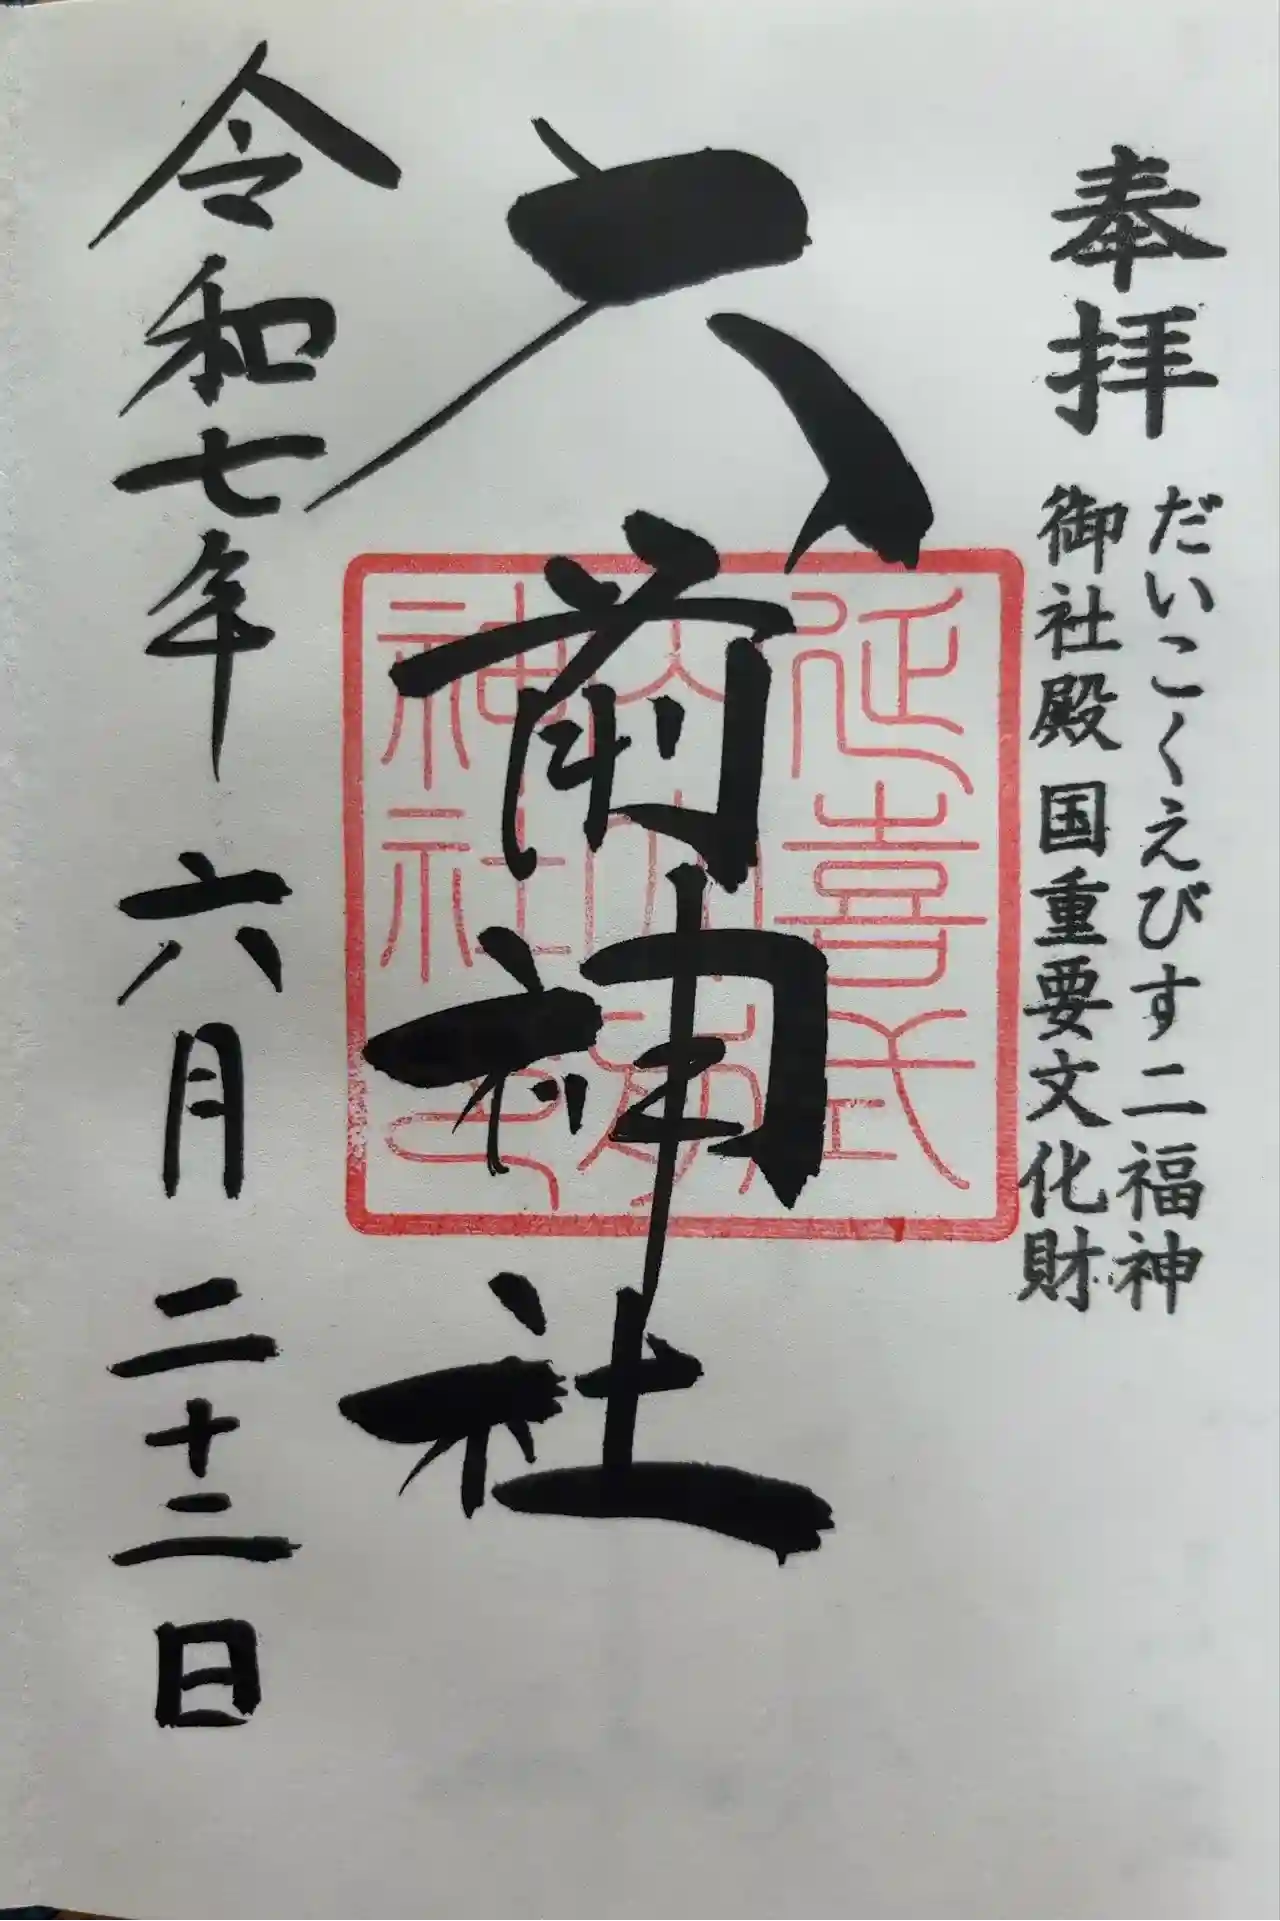 奉拝
だいこくえびす二福神
御社殿 国重要文化財
大前神社
延喜式
神社
令和七年 六月 二十二日